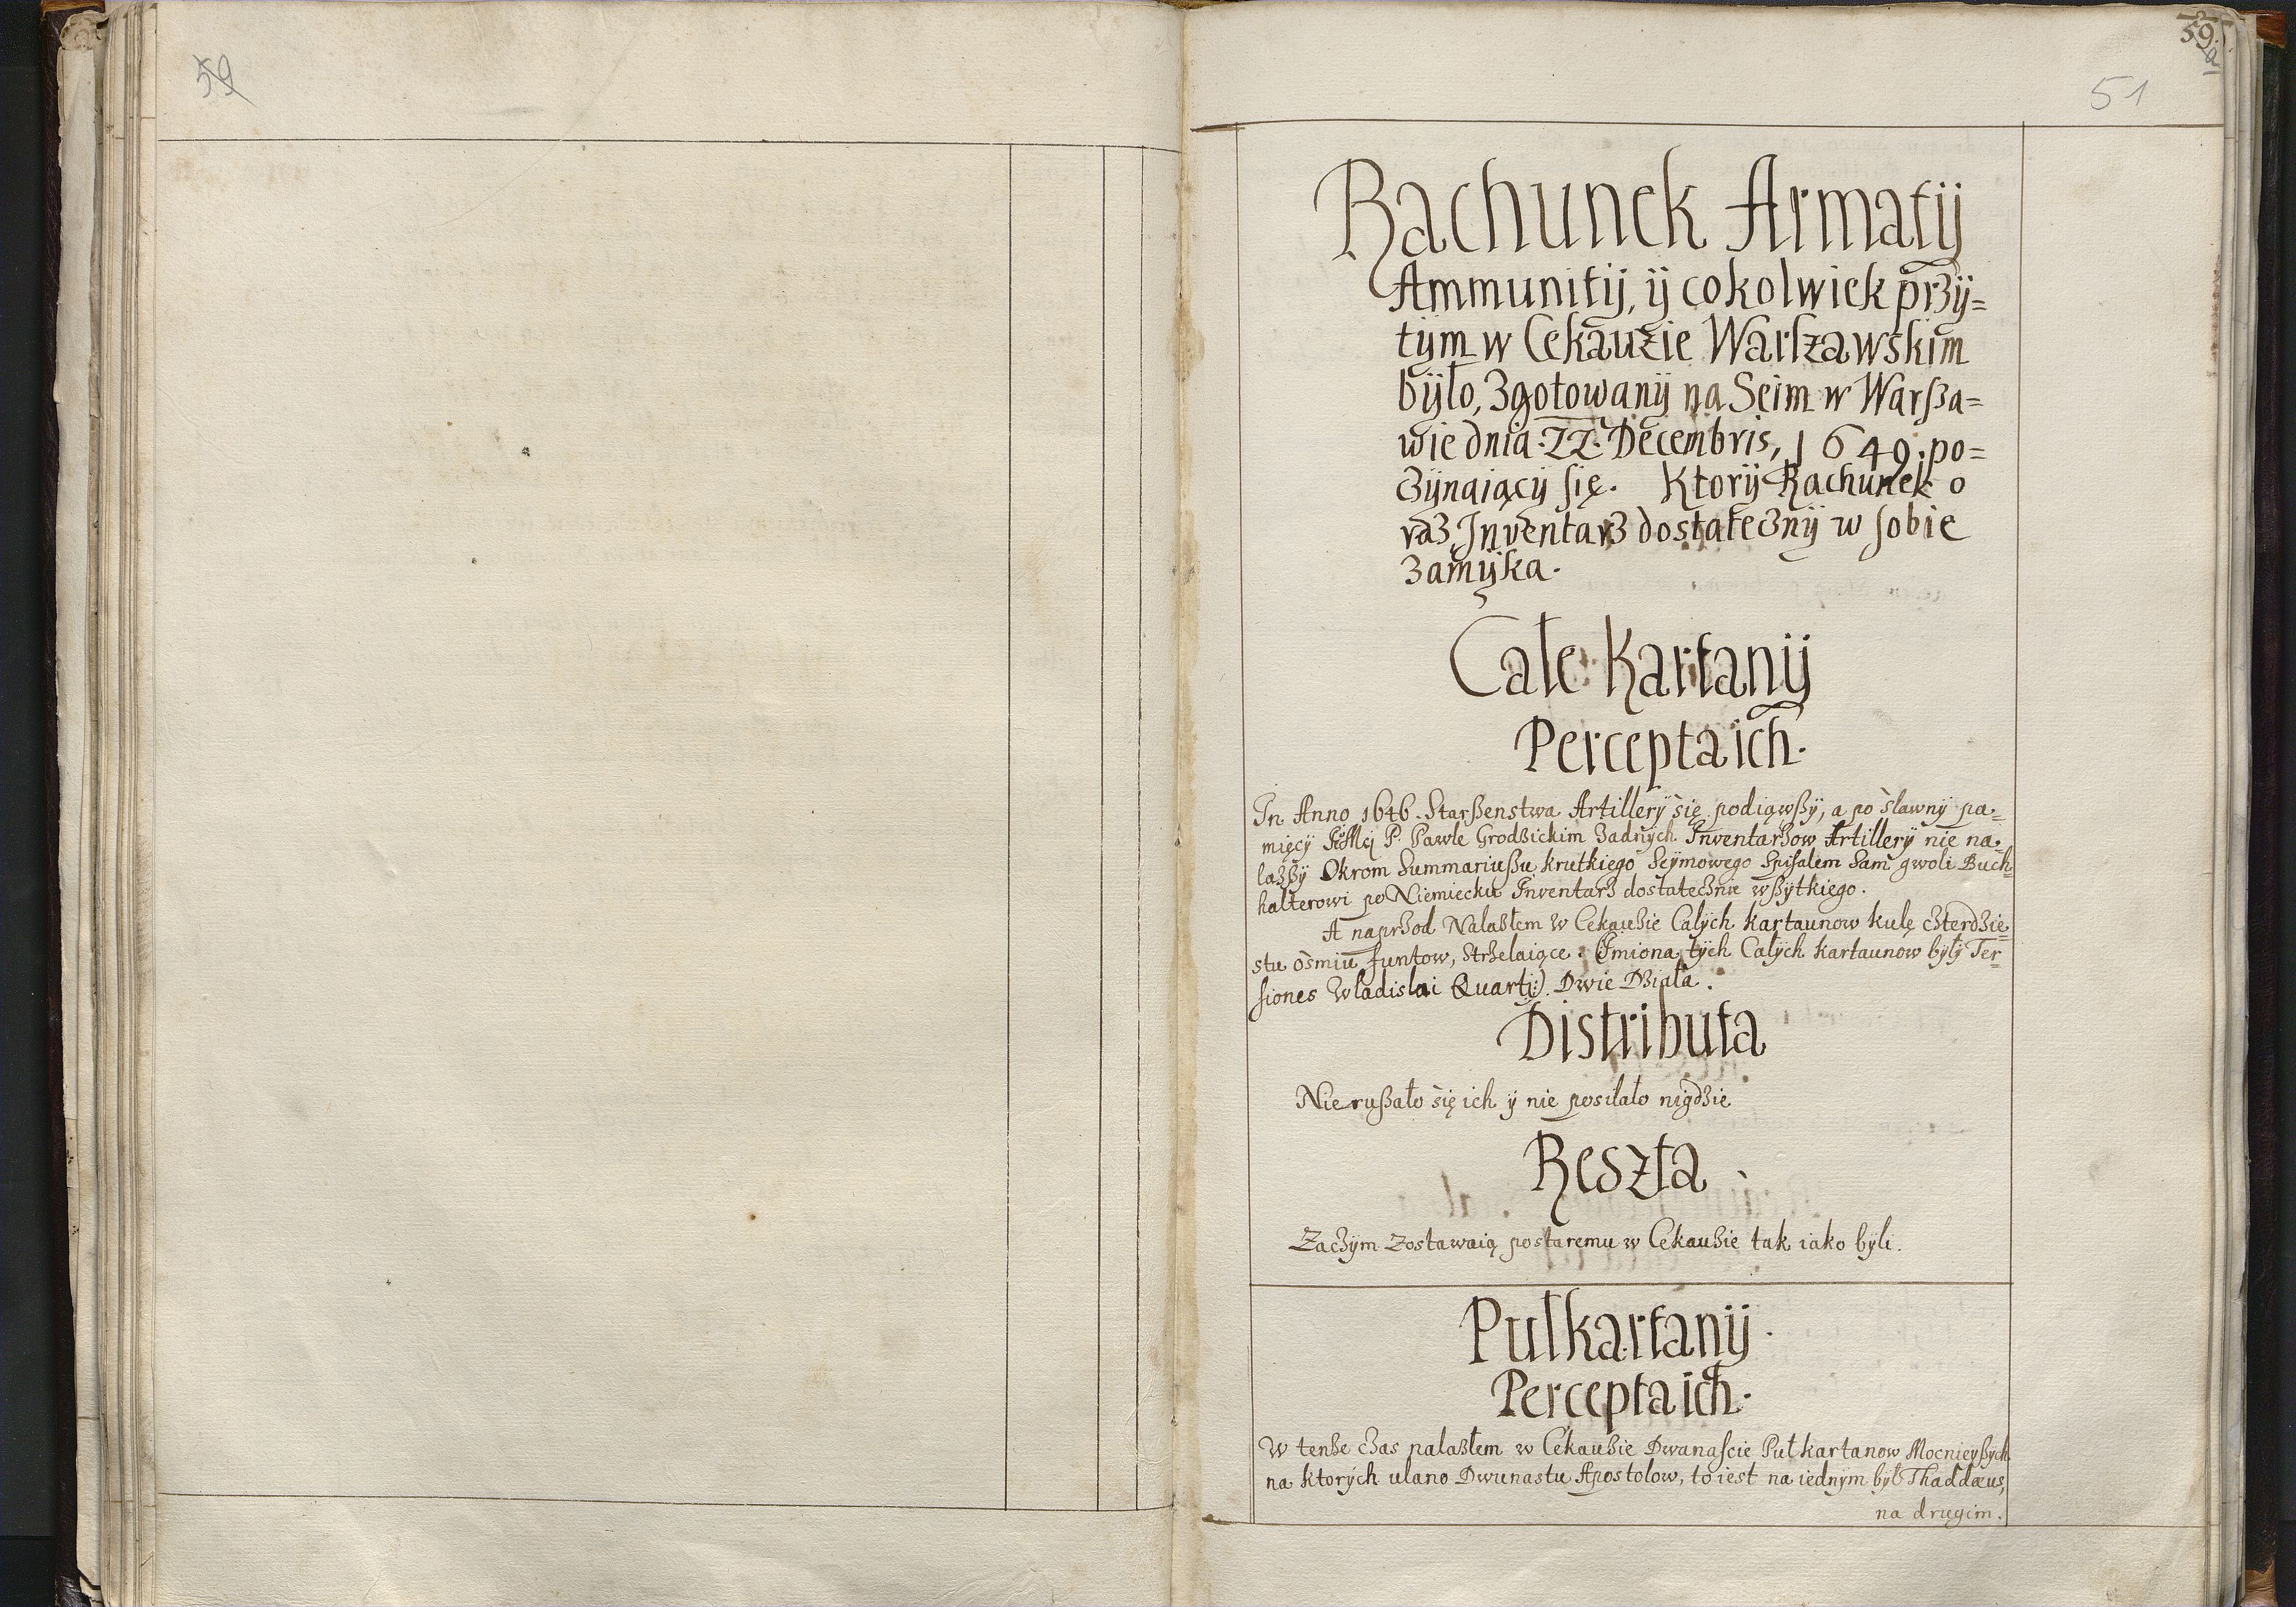 59
59.
51
Rachunek Armatÿ
Ammunitÿ, ÿ cokolwiek przÿ=
tÿm w Cekauzie Warszawskim
bÿło, zgotowanÿ na Seim w Warsza=
wie dnia 22. Decembris, 1649. po=
czÿnaiącÿ się. Ktorÿ Rachunek o
raz Inventarz dostatecznÿ w sobie
zamÿka.
Całe Kartanÿ
Percepta ich.
In Anno 1646. Starszenstwa Artillerÿ się podiąwszÿ, a po sławnÿ pa=
mięcÿ P. Pawle Grodzickim zadnÿch Inventarzow Artillerÿ nie na=
lazszÿ Okrom Summariuszu krutkiego Seÿmowego Spisałem Sam gwoli Buch=
halterowi po Niemiecku Inventarz dostatecznie wszÿtkiego.
A naprzod Nalazłem w Cekauzie Całÿch kartaunow kulę czterdzie=
stu ośmiu funtow, Strzelaiące: Imiona tÿch Całÿch kartaunow bÿłÿ Ter=
siones Wladislai Quarti:) Dwie Działa.
Distributa
Nie ruszało się ich ÿ nie posiłało nigdzie
Reszta
Zaczÿm Zostawaią postaremu w Cekauzie tak iako bÿli.
Pułkartanÿ.
Percepta ich.
W tenze czas nalazłem w Cekauzie Dwanaście Pułkartanow Mocnieÿszÿch
na ktorÿch ulano Dwunastu Apostołow, to iest na iednÿm bÿł Thaddæus,
na drugim.